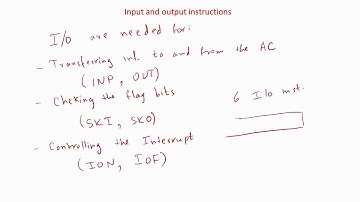 Input and output instructions
I/O are needed for:
- Transferring inf. to and from the AC
(INP, OUT)
- Cheking the flag bits
(SKI, SKO)
6 I/O inst.
- Controlling the Interrupt
(ION, IOF)